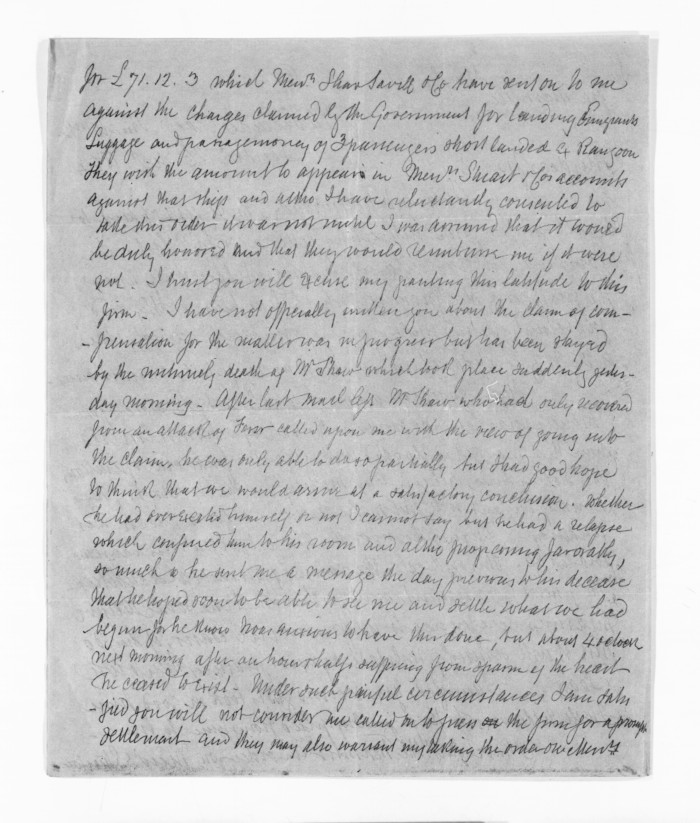 for £71.12.3 which Messrs Shaw Savill & Co have sent on to me
against the charges claimed by the Government for landing Emigrants
Luggage and passage money of 3 passengers short landed Ex Rangoon
They wish the amount to appear in Messrs Stuart & Cos accounts
against that ship and altho I have reluctantly consented to
take this order it was not until I was assured that it would
be duly honored and that they would reimburse me if it were
not. I trust you will excuse my granting this latitude to this
firm – I have not officially written you about the claim of com-
-pensation for the matter was in progress but has been stayed
by the untimely death of Mr Shaw which took place suddenly yester-
day morning – After last mail left Mr Shaw who had only recovered
from an attack of Fever called upon me with the view of going into
the claim, he was only able to do so partially but I had good hope
to think that we would arrive at a satisfactory conclusion. Whether
he had over exerted himself or not I cannot say but he had a relapse
which confined him to his room and altho progressing favorably,
so much so he sent me a message the day previous to his decease
that he hoped soon to be able to see me and settle what we had
begun for he knew I was anxious to have this done, but about 4 oclock
next morning after an hour & half suffering from spasm of the heart
he ceased to exist – Under such painful circumstances I am satis
-fied you will not consider me called on to press on the firm for a prompt
settlement and they may also warrant my taking the order on Messrs